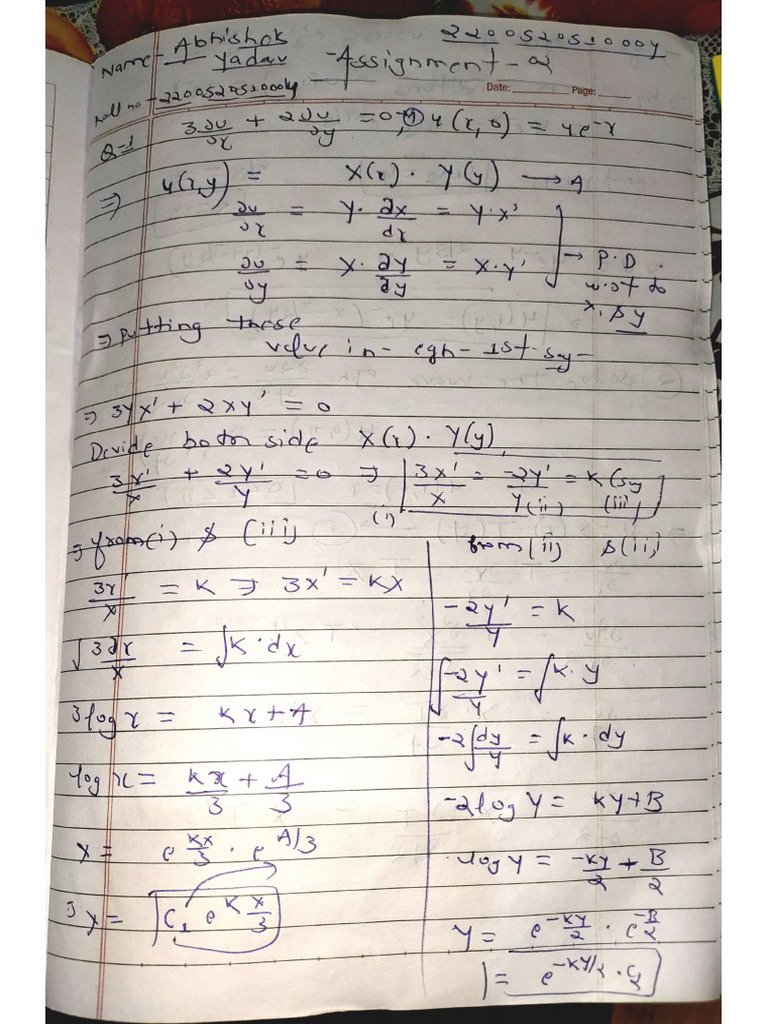 2200520510004
Name - Abhishek Yadav
Assignment - 2
Roll no - 2200520510004
Date: Page:
Q-1 3∂u/∂x + 2∂u/∂y = 0, ① u(x,0) = 4e^-x
⇒ u(x,y) = X(x) · Y(y) → A
∂u/∂x = Y · ∂x/dx = Y·X'
∂u/∂y = X · ∂Y/∂y = X·Y' → P.D. w.r.t to x, & y
⇒ Putting these
value in - eqn - 1st say -
⇒ 3YX' + 2XY' = 0
Devide both side X(x) · Y(y)
3X'/X + 2Y'/Y = 0 ⇒ 3X'/X = -2Y'/Y = K (say
(i) (ii) (iii)
⇒ from (i) & (iii)
3X'/X = K ⇒ 3X' = KX
∫3∂x/x = ∫K · dx
3logx = Kx + A
logx = Kx/3 + A/3
X = e^Kx/3 · e^A/3
3 X = C₁ e^K x/3
from (ii) & (iii)
-2Y'/Y = K
∫-2Y'/Y = ∫K·Y
-2∫dy/y = ∫K · dy
-2logY = KY+B
logY = -KY/2 + B/2
Y = e^-KY/2 · e^-B/2
= e^-KY/2 · C₂